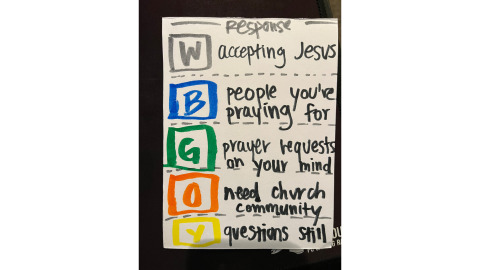 Response
W accepting Jesus
B people you're
praying for
G prayer requests
on your mind
O need church
community
Y questions still